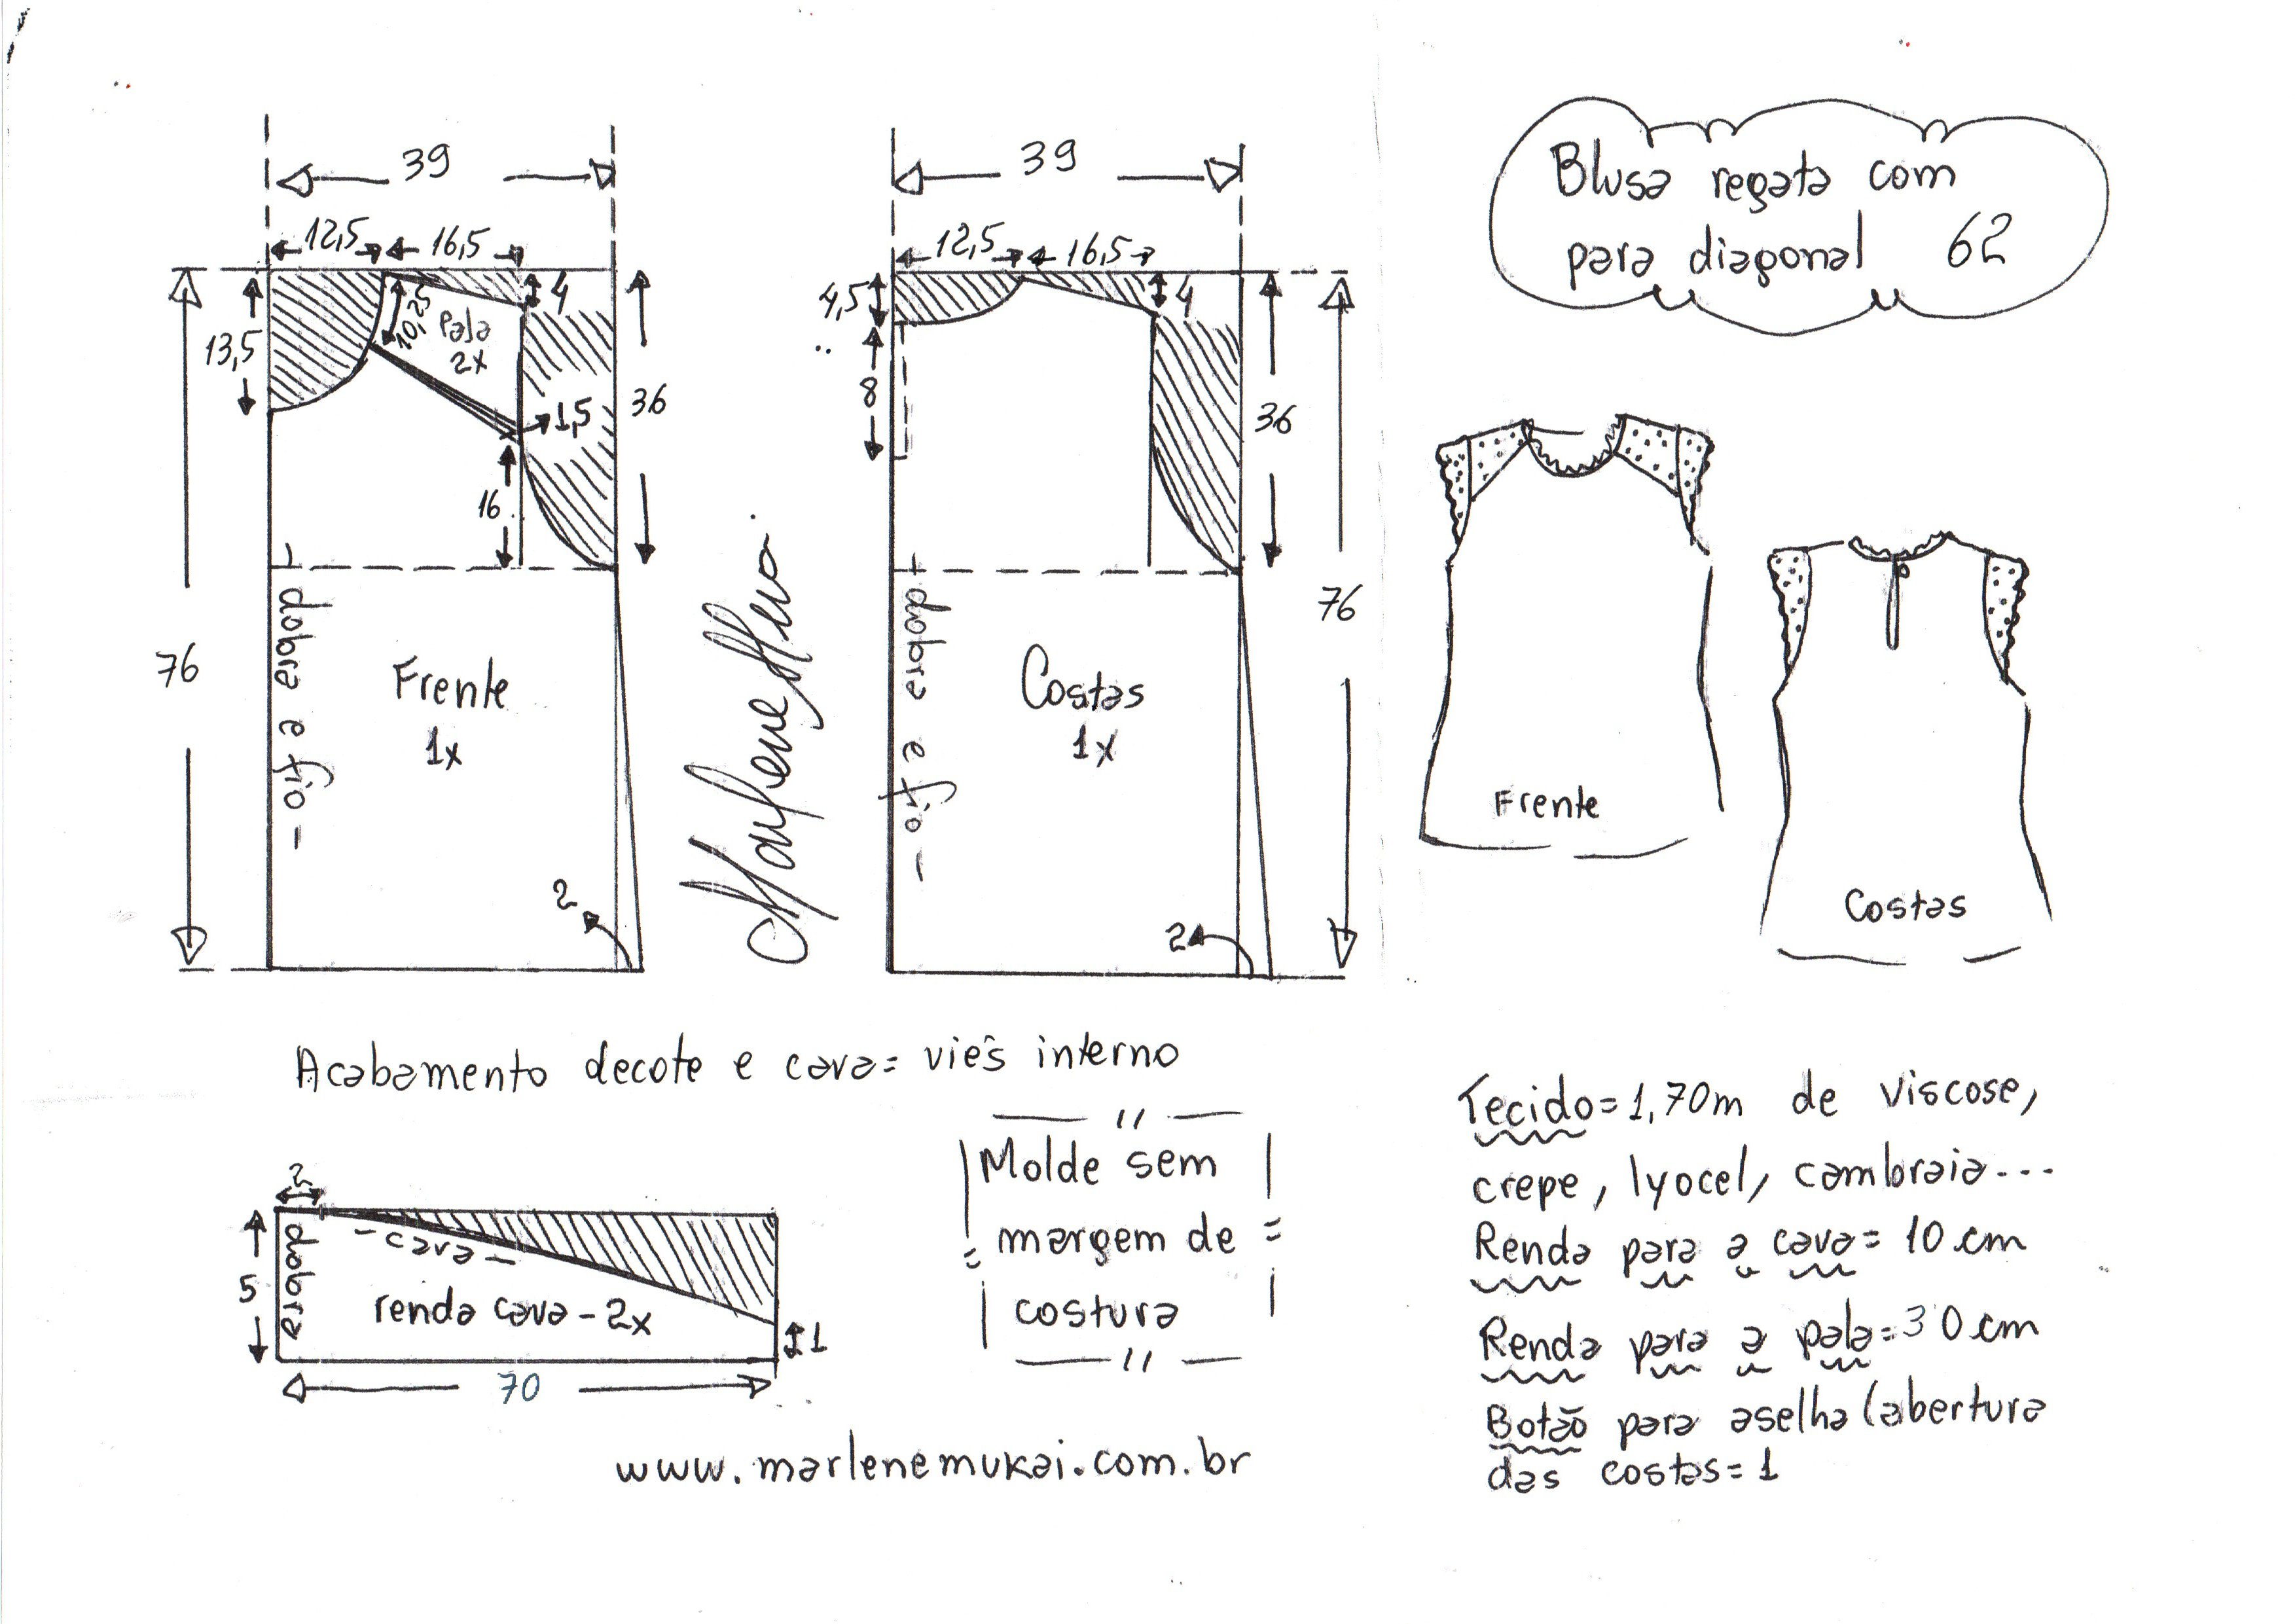 Blusa regata com
para diagonal 62
39
12,5 16,5
4
13,5
10,25
Pala
2x
1,5
36
16
76
dobra e fio
Frente
1x
2
Marlene Mukai
39
12,5 16,5
4,5
4
8
36
76
dobra e fio
Costas
1x
2
Frente
Costas
Acabamento decote e cava= viés interno
2
cava
5
dobra
renda cava - 2x
1
70
Molde sem
margem de
costura
Tecido=1,70m de viscose,
crepe, lyocel, cambraia...
Renda para a cava= 10 cm
Renda para a pala=30 cm
Botão para aselha (abertura
das costas=1
www.marlenemukai.com.br